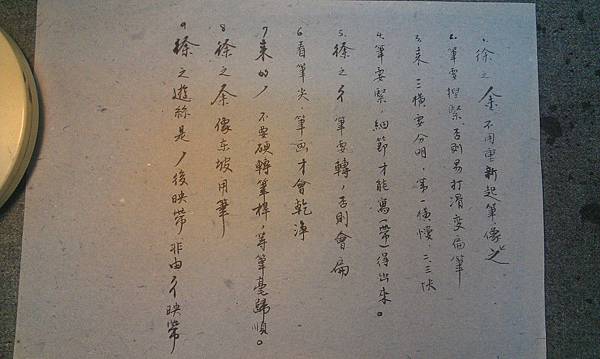 1. 徐之余不用重新起筆像之
2. 筆要捏緊,否則易打滑变扁筆
3. 來 三橫要分明,第一橫慢,二三快
4. 筆要緊,細節才能寫(帶)得出來。
5. 徐之彳筆要轉,否則會扁
6. 看筆尖,筆画才會乾淨
7. 來的丿 不要硬轉筆桿,等筆毫歸順。
8. 徐之余像东坡用筆
9. 徐之遊絲是丿後映帶 非由彳映帶